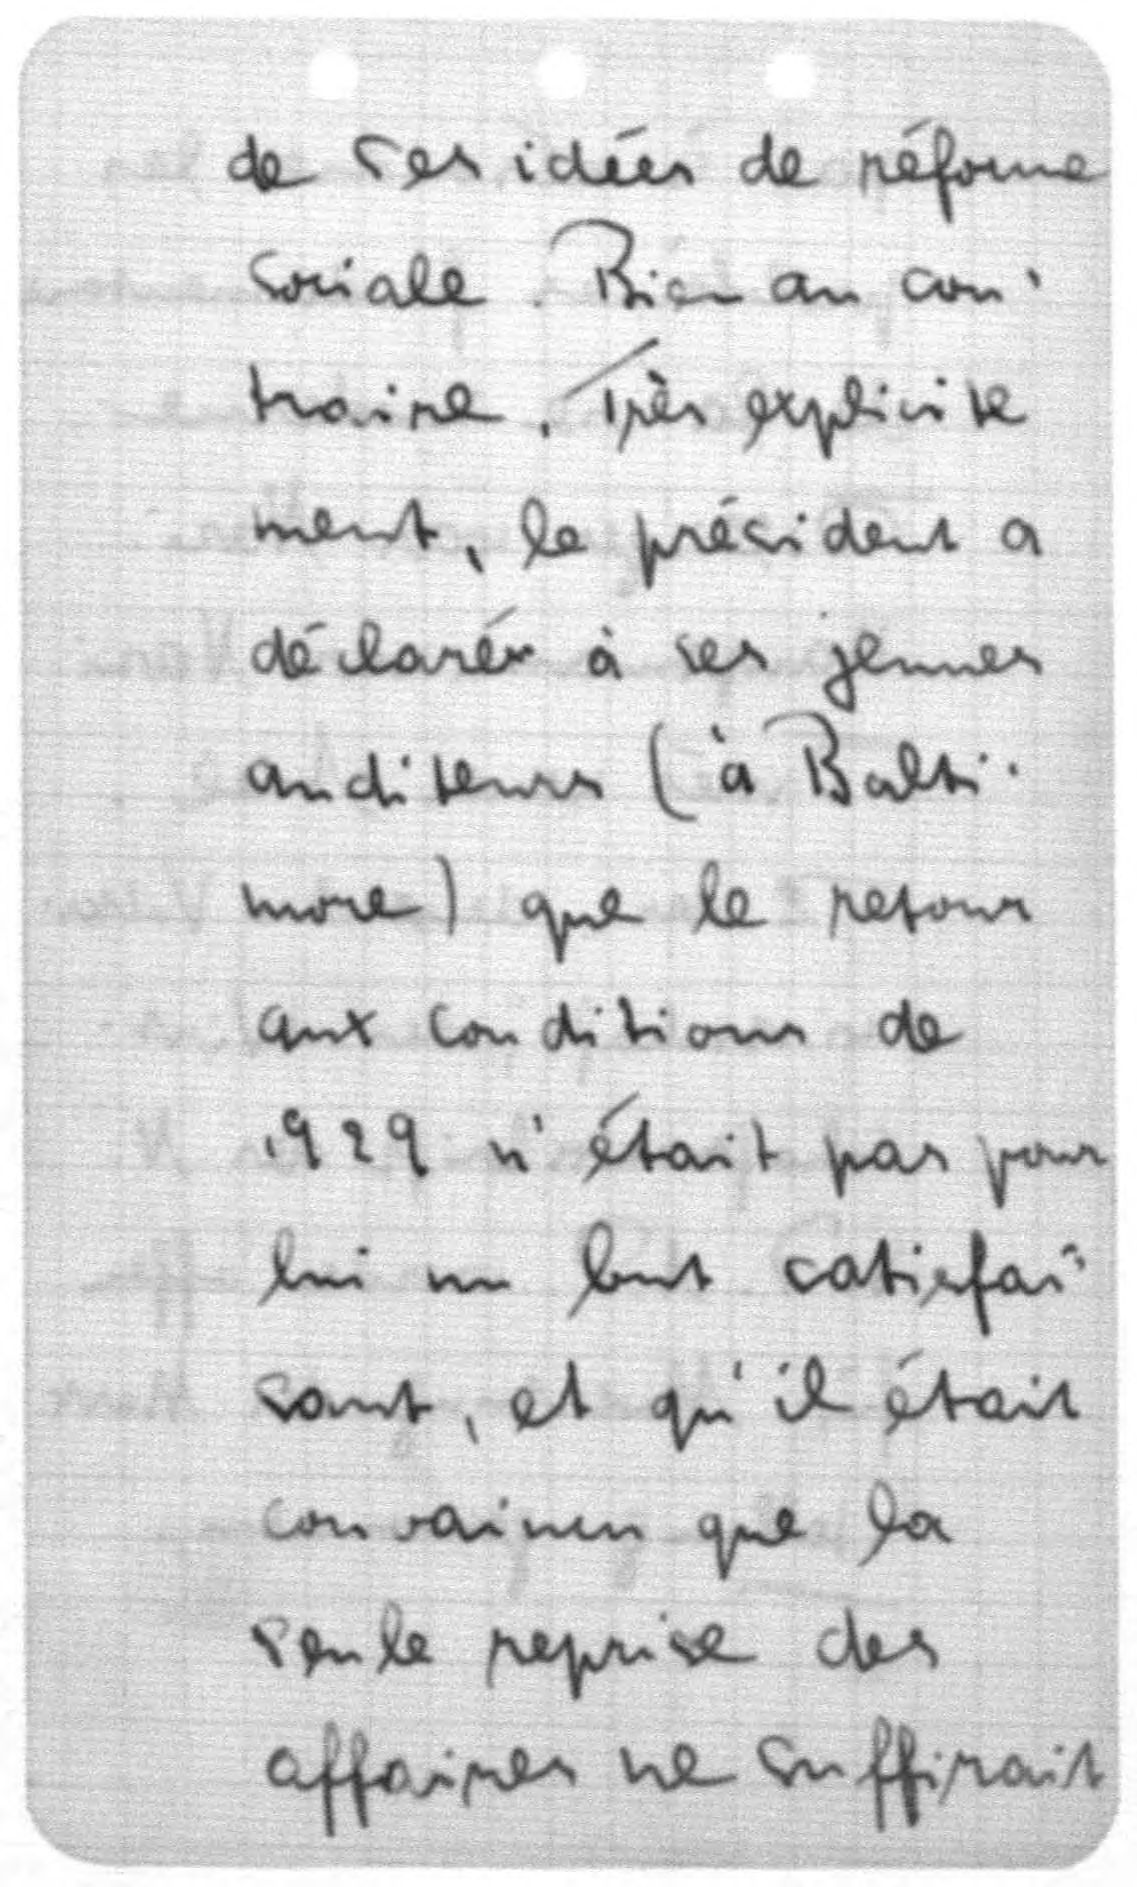 de ses idées de réforme
sociale. Bien au con-
traire. Très explicite
ment, le président a
déclaré à ses jeunes
auditeurs (à Balti-
more) que le retour
aux conditions de
1929 n'était pas pour
lui un but satisfai-
sant, et qu'il était
convaincu que la
seule reprise des
affaires ne suffirait